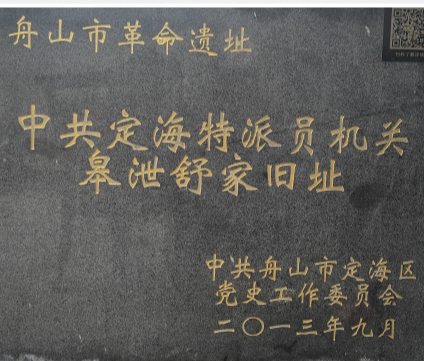 舟山市革命遗址
中共定海特派员机关
皋泄舒家旧址
中共舟山市定海区
党史工作委员会
二〇一三年九月